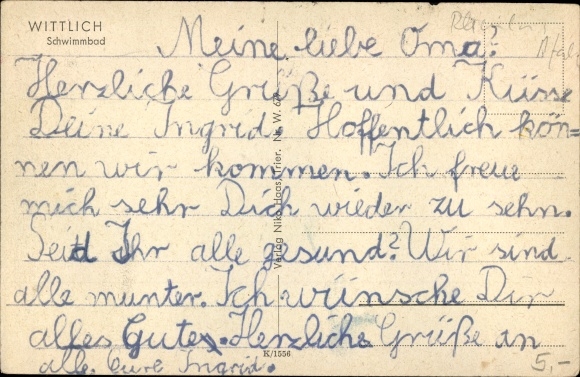 WITTLICH
Schwimmbad
Meine liebe Oma!
Herzliche Grüße und Küsse
Deine Ingrid. Hoffentlich kön=
nen wir kommen. Ich freue
mich sehr Dich wieder zu sehn.
Seid Ihr alle gesund? Wir sind
alle munter. Ich wünsche Dir
alles Gute. Herzliche Grüße an
alle. Eure Ingrid.
5,-
Verlag Niko Haas, Trier, Nr. W. 67
K/1556